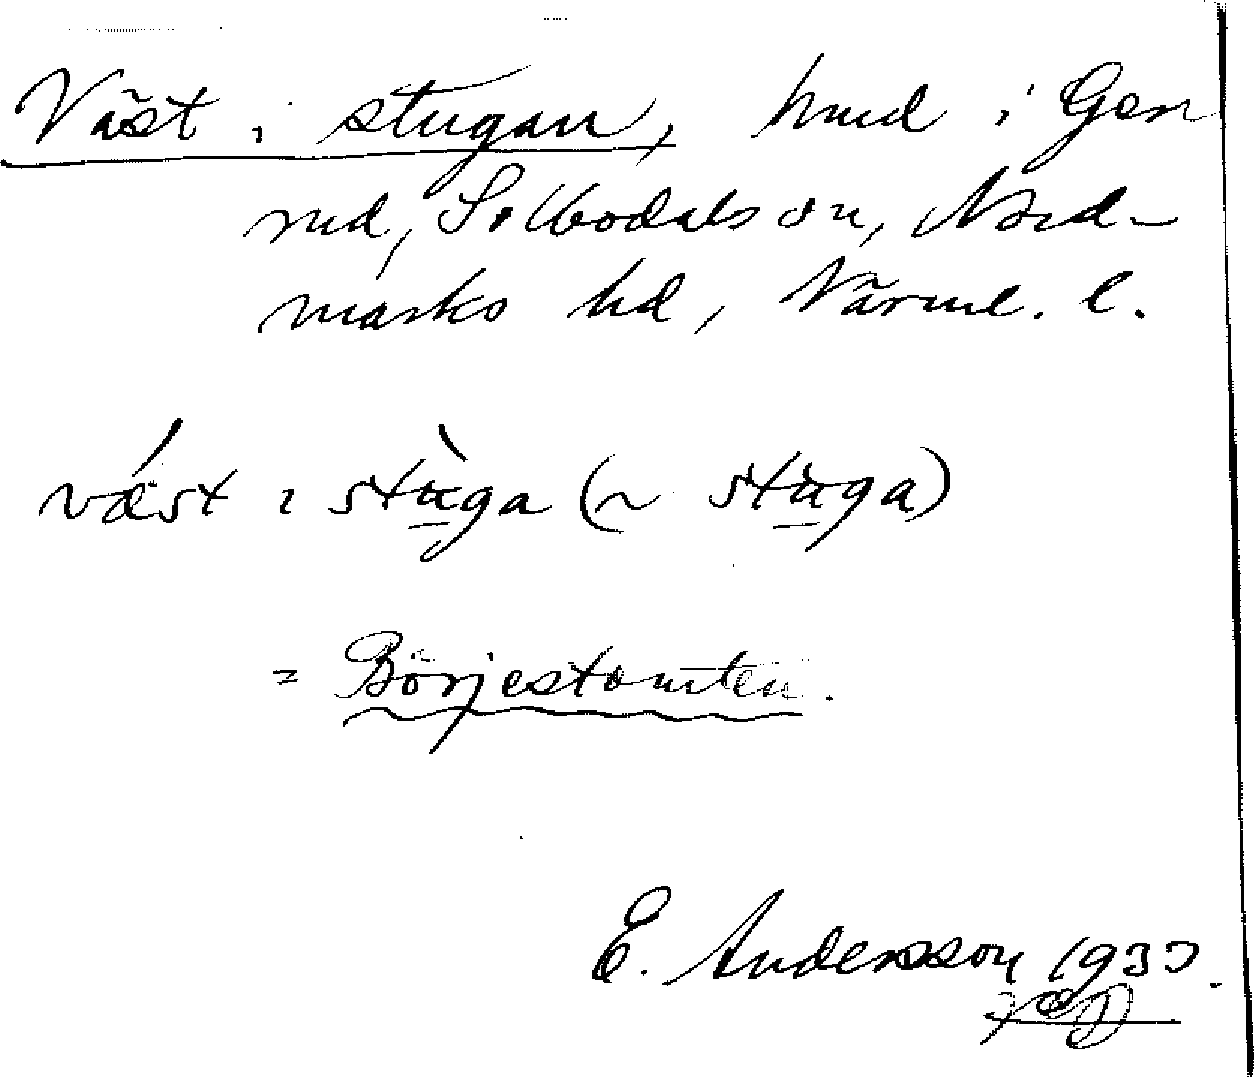 Väst i stugan, hmd i Gen
rud, Sillbodals sn, Nord-
marks hd, Värml. l.
væst i stu̲ga (~ stu̲ga)
= Börjestomten.
E. Andersson 1933.